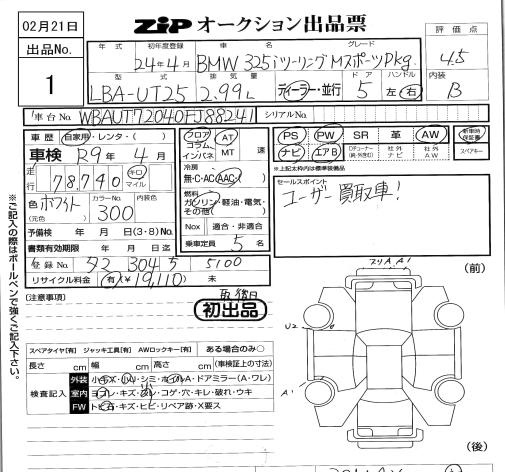 02月21日
ZIP オークション出品票
出品No.
1
年式 初年度登録 車名 グレード
24年4月 BMW 325i ツーリング Mスポーツ Pkg.
型式 排気量 ドア ハンドル
LBA-UT25 2.99L ディーラー・並行 5 左・右
評価点
4.5
内装
B
車台No. WBAUT72040FJ88241 シリアルNo.
車歴 自家用・レンタ・( )
車検 R9年 4月
走行 78,740 キロ マイル
色 ホワイト カラーNo. 内装色
(元色) 300
予備検 年 月 日(3・8)No.
書類有効期限 年 月 日迄
登録No. 304 5 5100
リサイクル料金 有(¥19,110) 未
フロア コラム インパネ AT MT 速
冷房
無・C・AC・AAC
燃料
ガソリン・軽油・電気・その他( )
Nox 適合・非適合
乗車定員 5 名
PS PW SR 革 AW 新車時保証書
ナビ エアB Dチューナー 社外ナビ 社外AW スペアキー
※上記太枠内は標準装備品
セールスポイント
ユーザー買取車!
※ご記入の際はボールペンで強くご記入下さい。
[注意事項]
初出品
スペアタイヤ[有] ジャッキ工具[有] AWロックキー[有] ある場合のみ○
長さ cm 幅 cm 高さ cm (車検証上の寸法)
検査記入
外装 小キズ・凹・シミ・ホイルA・ドアミラー(A・ワレ)
室内 ヨゴレ・キズ・スレ・コゲ・穴・キレ・破れ・ウキ
FW トビ石・キズ・ヒビ・リペア跡・X要ス
(前)
A1
U2
A1
(後)